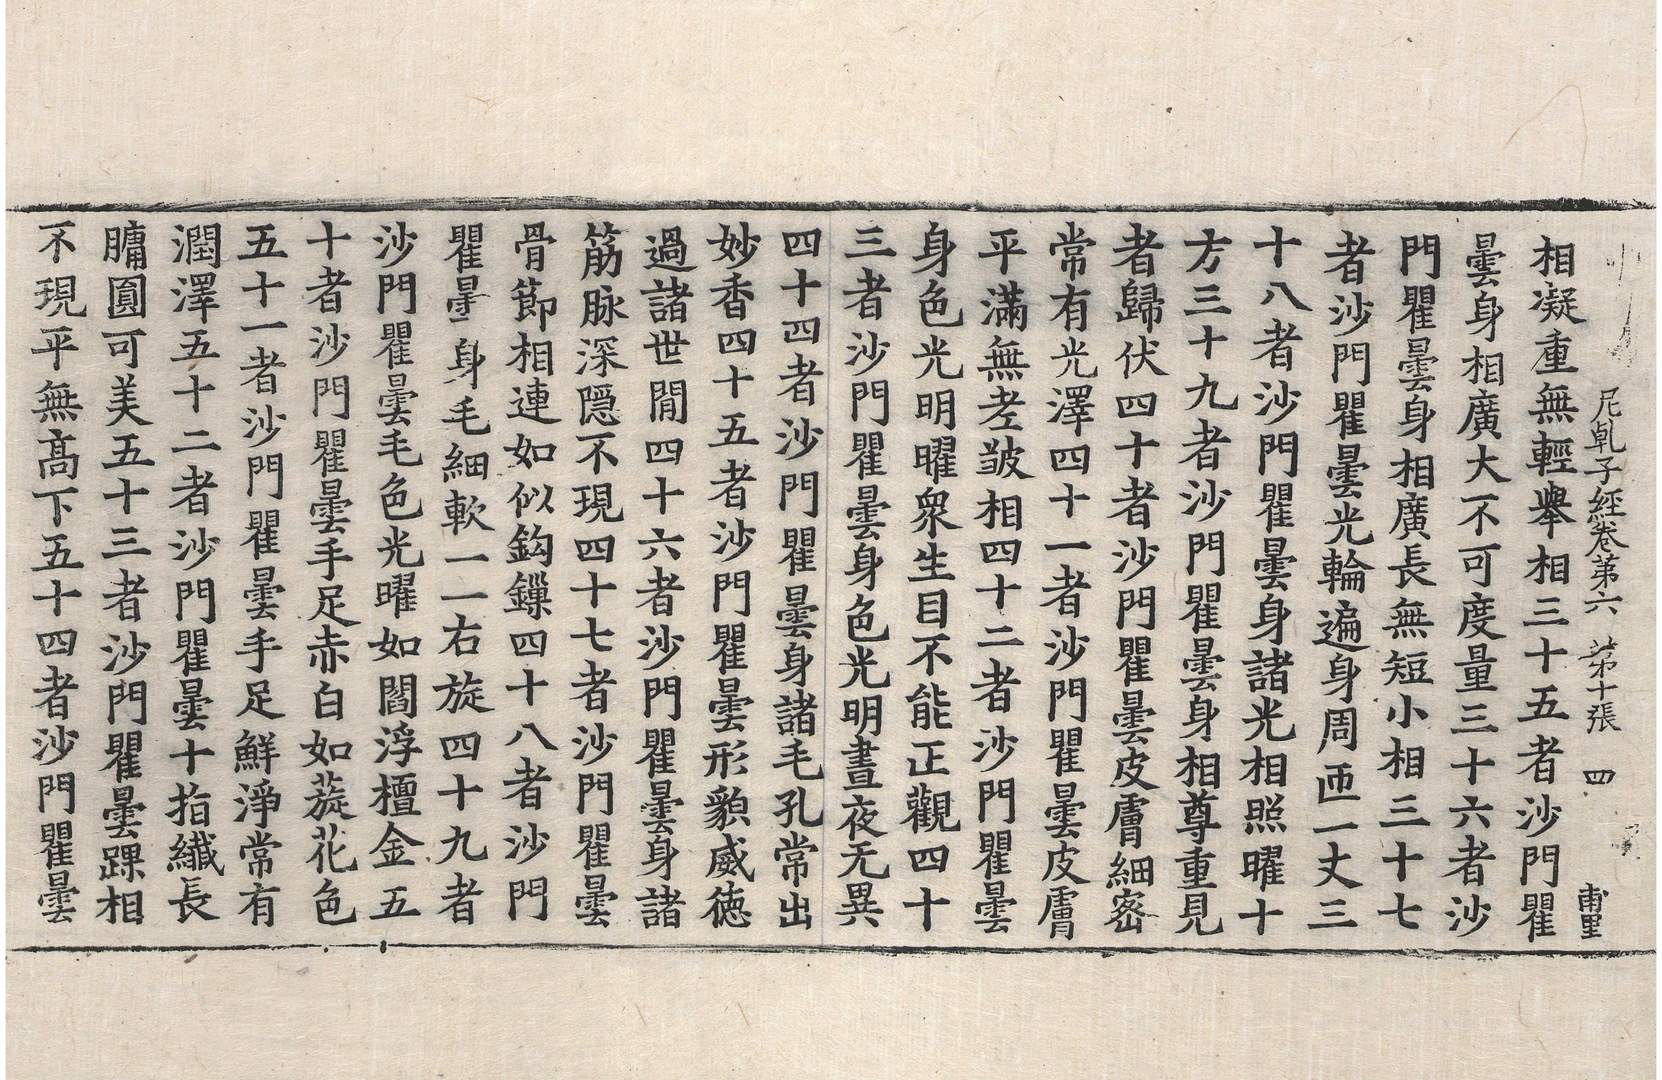 尼乹子経卷第六 第十張 四 甫里
相凝重無輕舉相三十五者沙門瞿
曇身相廣大不可度量三十六者沙
門瞿曇身相廣長無短小相三十七
者沙門瞿曇光輪遍身周迊一丈三
十八者沙門瞿曇身諸光相照曜十
方三十九者沙門瞿曇身相尊重見
者歸伏四十者沙門瞿曇皮膚細密
常有光澤四十一者沙門瞿曇皮膚
平滿無老皺相四十二者沙門瞿曇
身色光明曜衆生目不能正觀四十
三者沙門瞿曇身色光明晝夜无異
四十四者沙門瞿曇身諸毛孔常出
妙香四十五者沙門瞿曇形貌威徳
過諸世間四十六者沙門瞿曇身諸
筋脉深隠不現四十七者沙門瞿曇
骨節相連如似鈎鏁四十八者沙門
瞿曇身毛細軟一一右旋四十九者
沙門瞿曇毛色光曜如閻浮檀金五
十者沙門瞿曇手足赤白如蓯花色
五十一者沙門瞿曇手足鮮淨常有
潤澤五十二者沙門瞿曇十指纖長
𦟛圓可美五十三者沙門瞿曇踝相
不現平無髙下五十四者沙門瞿曇